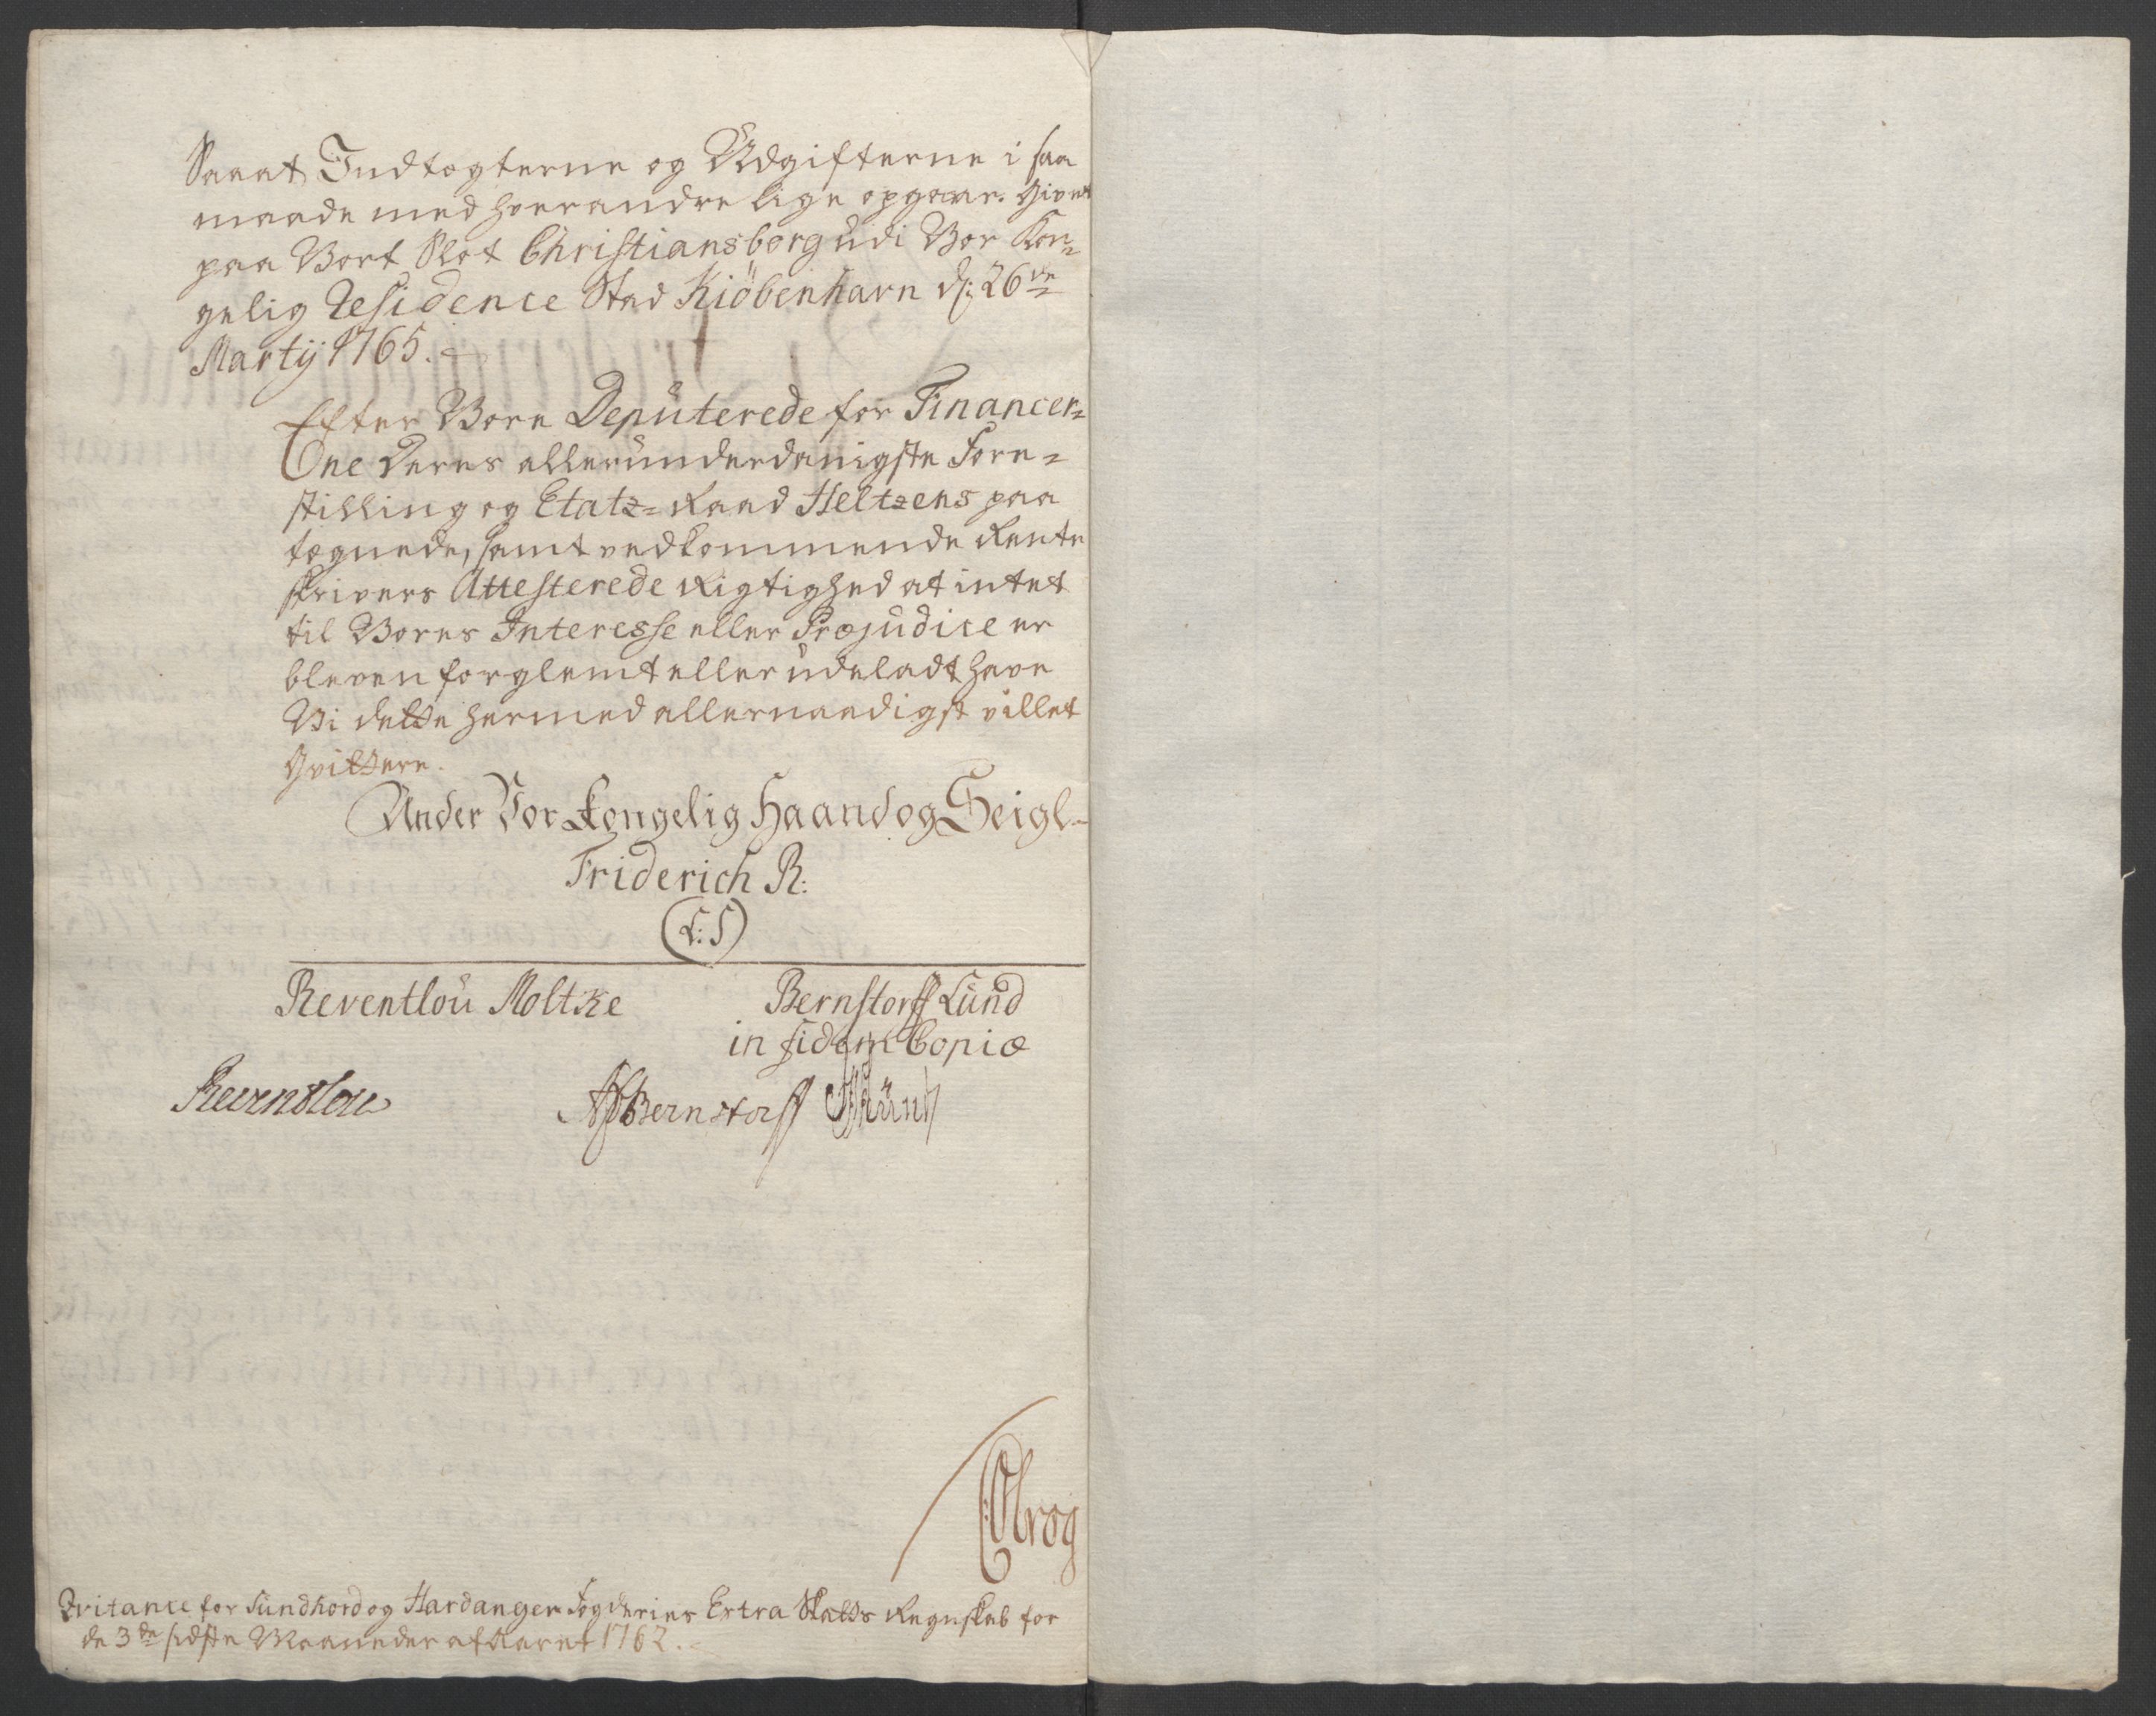 Saaat Indtægterne og Udgifterne i saa
maade med hverandre lige opgaar. Givet
paa Vort Slot Christiansborg udi Vor Kon=
gelig Residence Stad Kiöbenhavn d: 26de
Martij 1765.
Efter Vore Deputerede for Financer=
ne Deres allerunderdanigste Fore=
stilling og Etatz=Raad Heltzens paa
tegnede, samt vedkommende Rente
skrivers Attesterede Rigtighed at intet
til Vores Interesse eller Præjudice er
bleven forglemt eller udeladt have
Vi dette hermed allernaadigst villet
Qvittere.
Under Vor Kongelig Haand og Seigl
Friderich R:
(L:S)
Reventlou Moltke Bernstorff Lund
in fidem Copiæ
Reventlou APBernstorff
Olrog
Qvitance for Sundhord og Hardanger Fogderies Extra Skatts Regnskab for
de 3de sidste Maaneder af Aaret 1762.